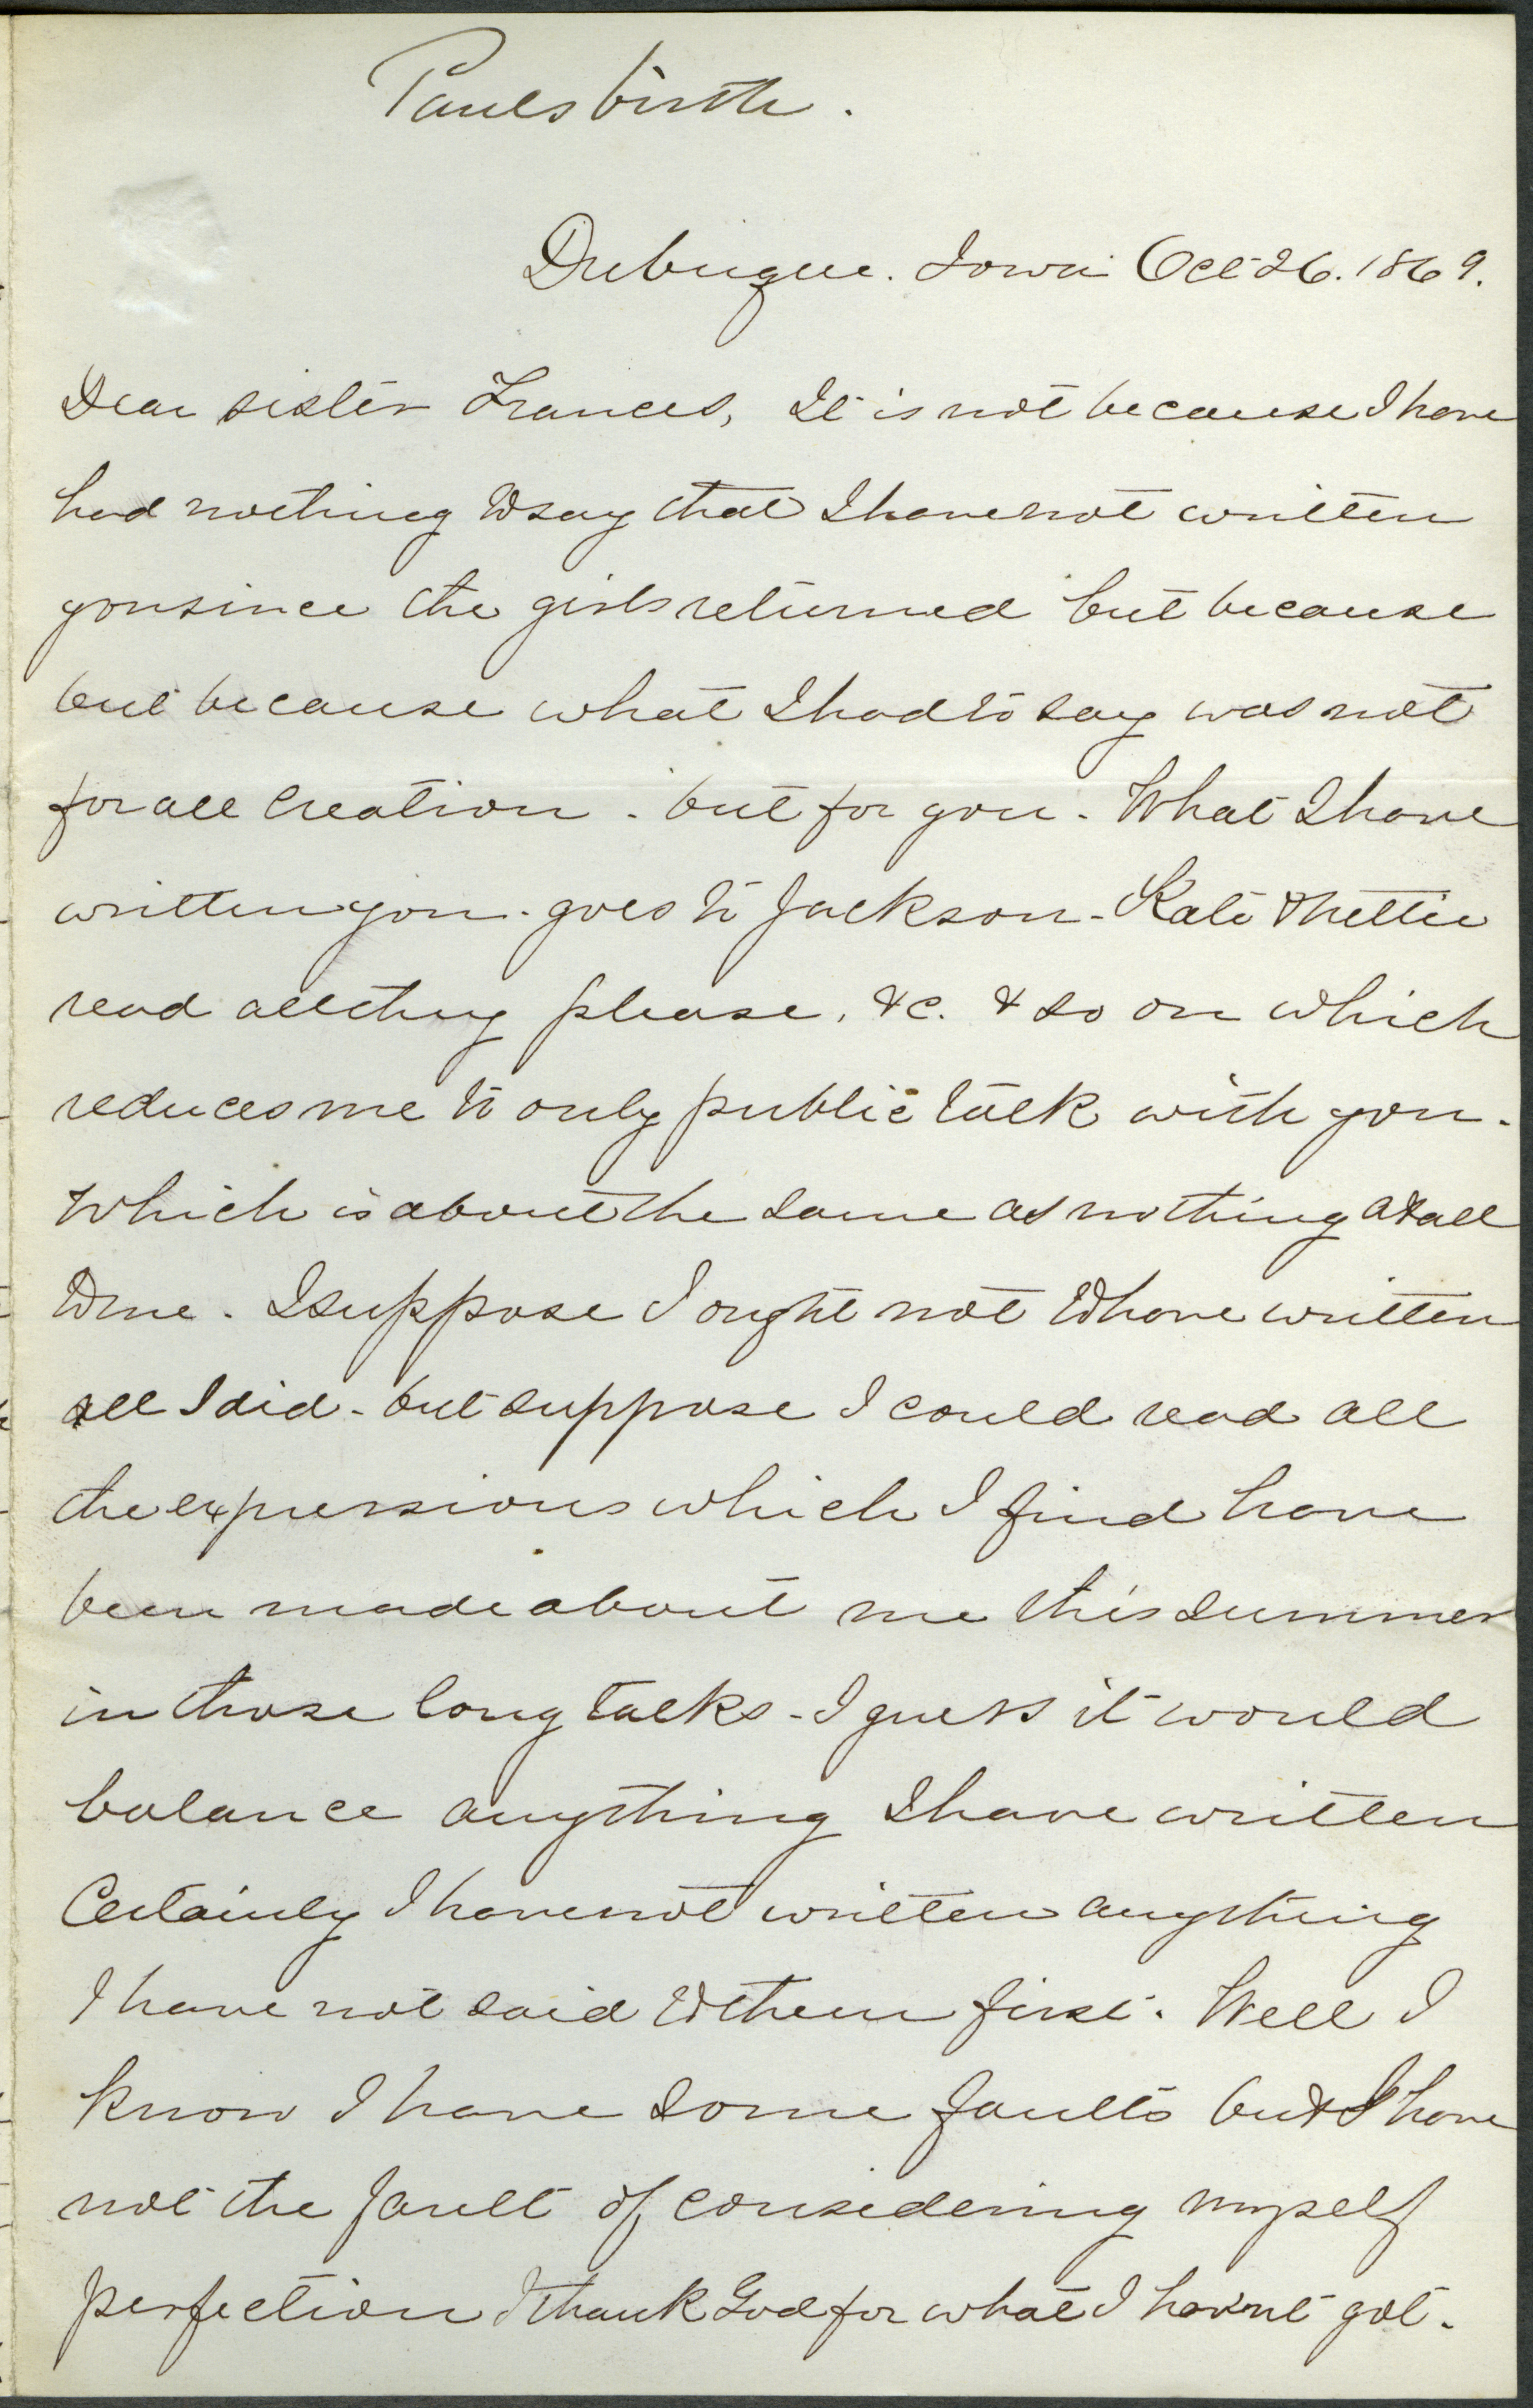 Pauls birth.
Dubuque. Iowa Oct 26. 1869.
Dear sister Frances, It is not because I have
had nothing to say that I have not written
you since the girls returned but because
but because what I had to say was not
for all creation. but for you. What I have
written you. goes to Jackson. Kate & Nettie
read all they please, &c. & so on which
reduces me to only public talk with you.
Which is about the same as nothing at all
to me. I suppose I ought not to have written
all I did. but suppose I could read all
the expressions which I find have
been made about me this summer
in those long talks - I guess it would
balance anything I have written
Certainly I have not written anything
I have not said to them first. Well I
know I have some faults but I have
not the fault of considering myself
perfection I thank God for what I hav'nt got.